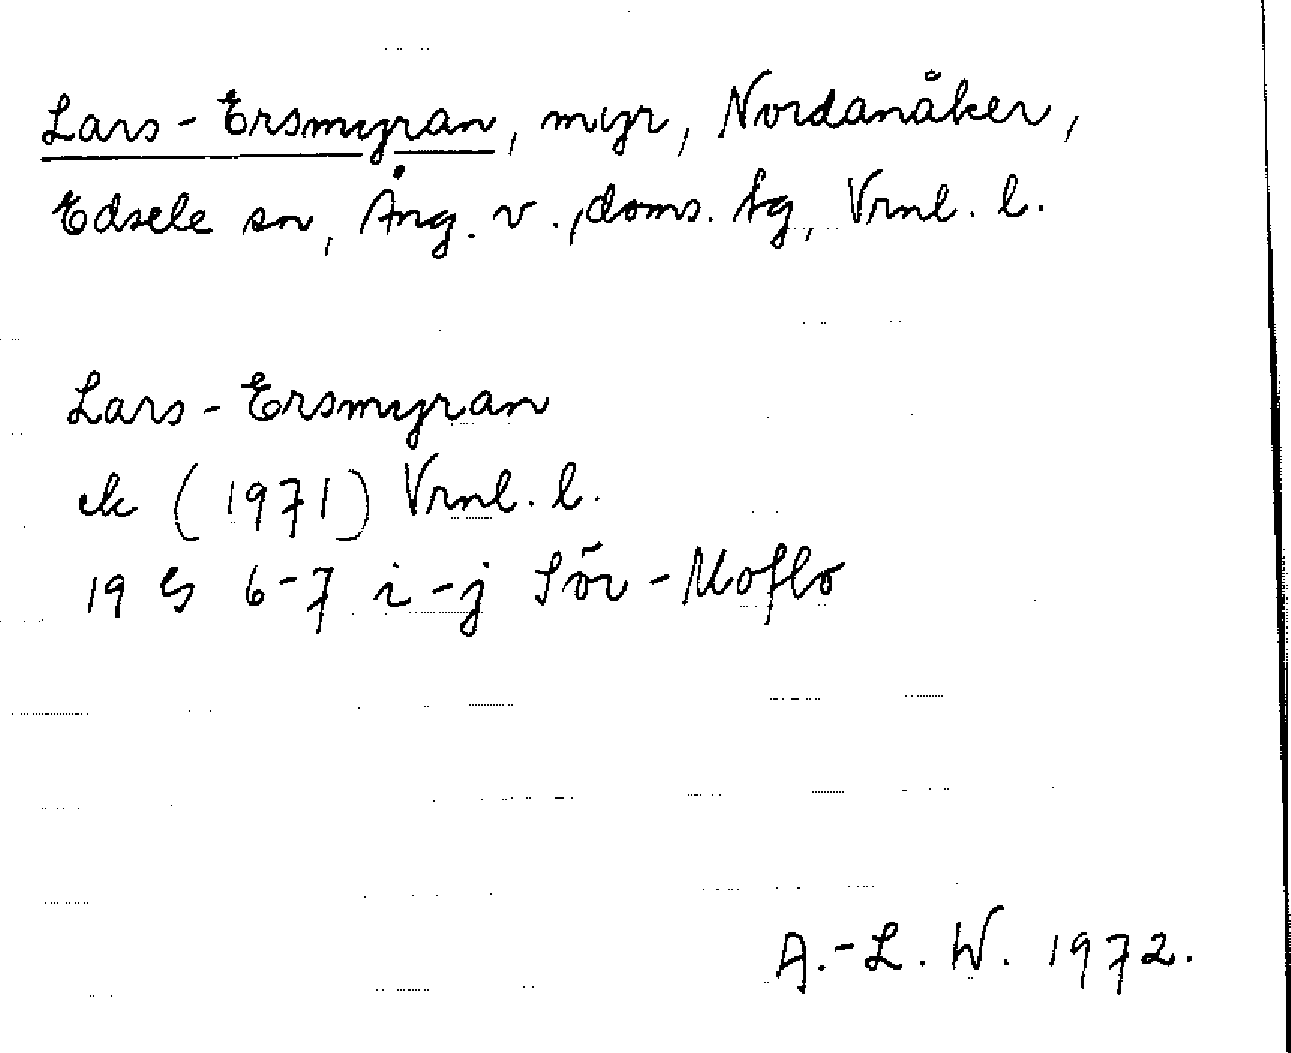 Lars-Ersmyran, myr, Nordanåker,
Edsele sn, Ång. v., doms. tg, Vrnl. l.
Lars-Ersmyran
ek (1971) Vrnl. l.
19 G 6-7 i-j Sör-Moflo
A.-L. W. 1972.